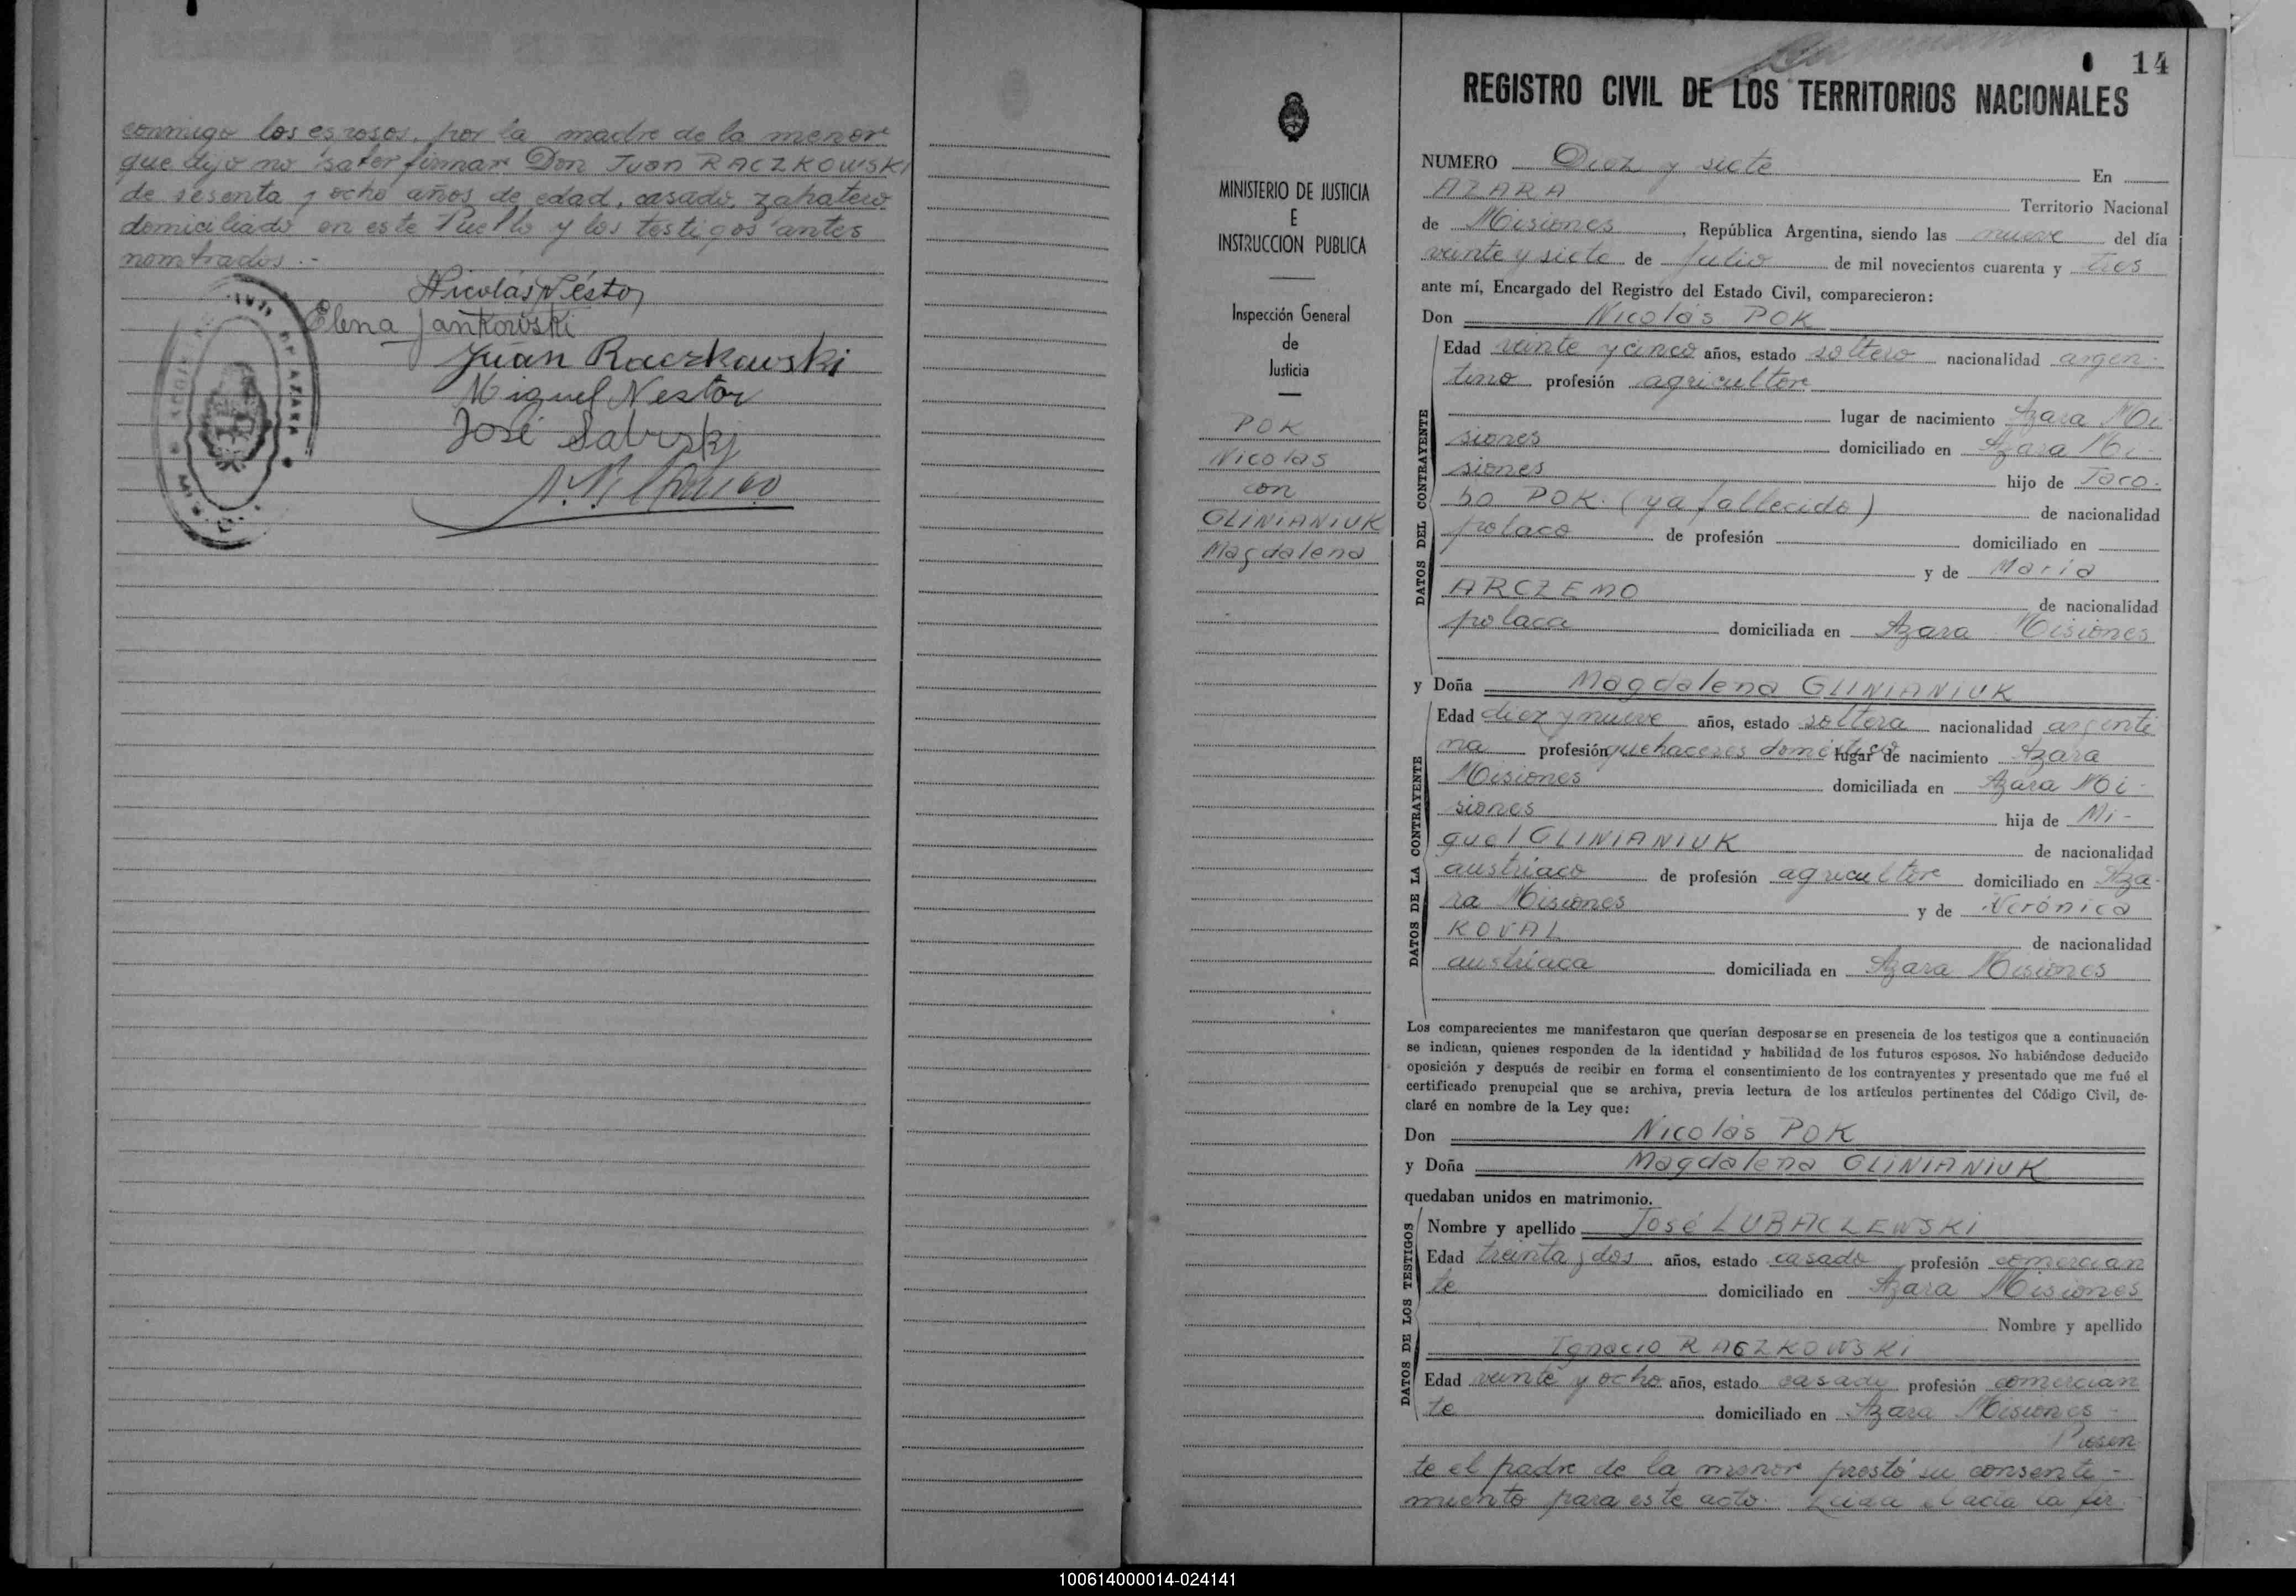 conmigo los esposos, por la madre de la menor
que dijo no saber firmar Don Juan RACZKOWSKI
de sesenta y ocho años de edad, casado, zapatero
domiciliado en este Pueblo y los testigos antes
nombrados.-
Nicolás Néstor
Elena Jankowski
Juan Raczkowski
Miguel Nestor
José Saburski
14
REGISTRO CIVIL DE LOS TERRITORIOS NACIONALES
MINISTERIO DE JUSTICIA
E
INSTRUCCION PUBLICA
Inspección General
de
Justicia
POK
Nicolas
con
GLINIANIUK
Magdalena
NUMERO Diez y siete En
AZARA Territorio Nacional
de Misiones, República Argentina, siendo las nueve del día
veinte y siete de Julio de mil novecientos cuarenta y tres
ante mí, Encargado del Registro del Estado Civil, comparecieron:
Don Nicolás POK
DATOS DEL CONTRAYENTE
Edad veinte y cinco años, estado soltero nacionalidad argen-
tino profesión agricultor
lugar de nacimiento Azara Mi-
siones domiciliado en Azara Mi-
siones hijo de Jaco-
bo POK. (ya fallecido) de nacionalidad
polaco de profesión domiciliado en
y de María
ARCZEMO de nacionalidad
polaca domiciliada en Azara Misiones
y Doña Magdalena GLINIANIUK
DATOS DE LA CONTRAYENTE
Edad diez y nueve años, estado soltera nacionalidad argenti
na profesión quehaceres domésticos lugar de nacimiento Azara
Misiones domiciliada en Azara Mi-
siones hija de Mi-
guel GLINIANIUK de nacionalidad
austriaco de profesión agricultor domiciliado en Aza-
ra Misiones y de Verónica
KOVAL de nacionalidad
austriaca domiciliada en Azara Misiones
Los comparecientes me manifestaron que querían desposarse en presencia de los testigos que a continuación
se indican, quienes responden de la identidad y habilidad de los futuros esposos. No habiéndose deducido
oposición y después de recibir en forma el consentimiento de los contrayentes y presentado que me fué el
certificado prenupcial que se archiva, previa lectura de los artículos pertinentes del Código Civil, de-
claré en nombre de la Ley que:
Don Nicolás POK
y Doña Magdalena GLINIANIUK
quedaban unidos en matrimonio.
DATOS DE LOS TESTIGOS
Nombre y apellido José LUBACZEWSKI
Edad treinta y dos años, estado casado profesión comercian
te domiciliado en Azara Misiones
Nombre y apellido
Ignacio RACZKOWSKI
Edad veinte y ocho años, estado casado profesión comercian
te domiciliado en Azara Misiones -
Presen
te el padre de la menor prestó su consenti-
miento para este acto. Leida el acta la fir
100614000014-024141